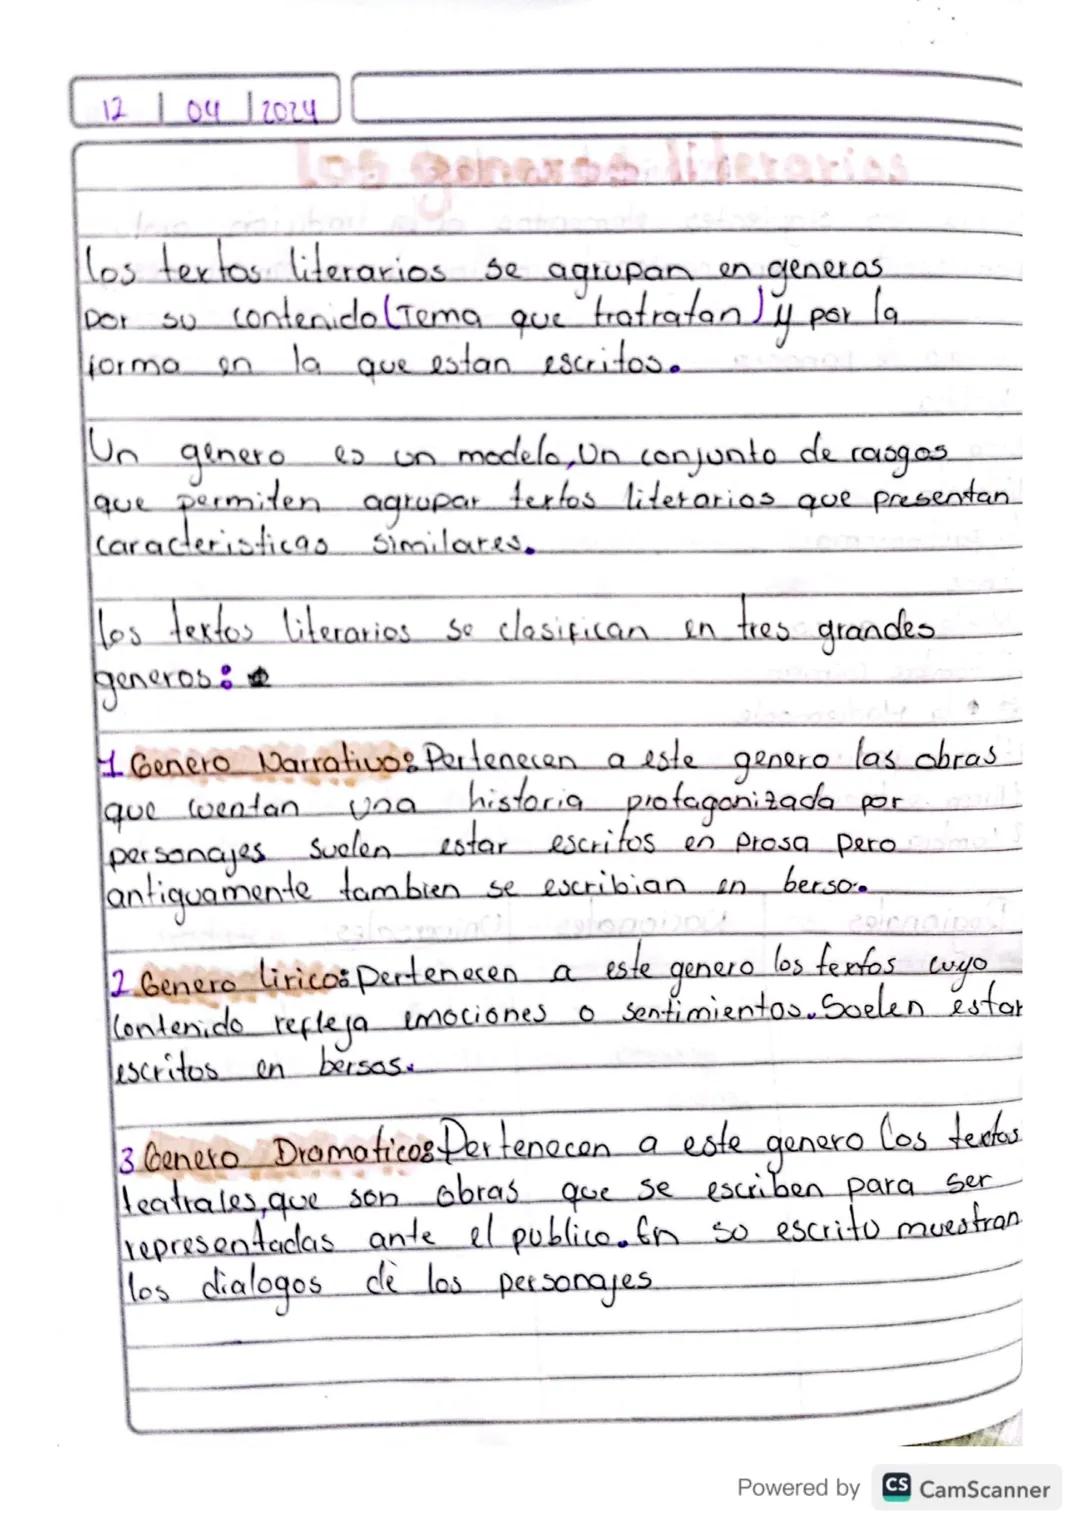 12 | 04 | 2024
los generos literarios
los textos literarios se agrupan en generos
por su contenido (Tema que tratratan) y por la
forma en la que estan escritos.
Un genero es un modelo, Un conjunto de rasgos
que permiten agrupar textos literarios que presentan
caracteristicas similares.
los textos literarios se clasifican en tres grandes
generos:
1 Genero Narrativo: Pertenecen a este genero las obras
que cuentan una historia protagonizada por
personajes suelen estar escritos en prosa pero
antiguamente tambien se escribian en berso.
2 Genero lirico: pertenecen a este genero los textos cuyo
contenido refleja emociones o sentimientos. Suelen estar
escritos en bersos.
3 Genero Dramatico: Pertenecen a este genero los textos
teatrales, que son obras que se escriben para ser
representadas ante el publico. En su escrito muestran
los dialogos de los personajes
Powered by CS CamScanner